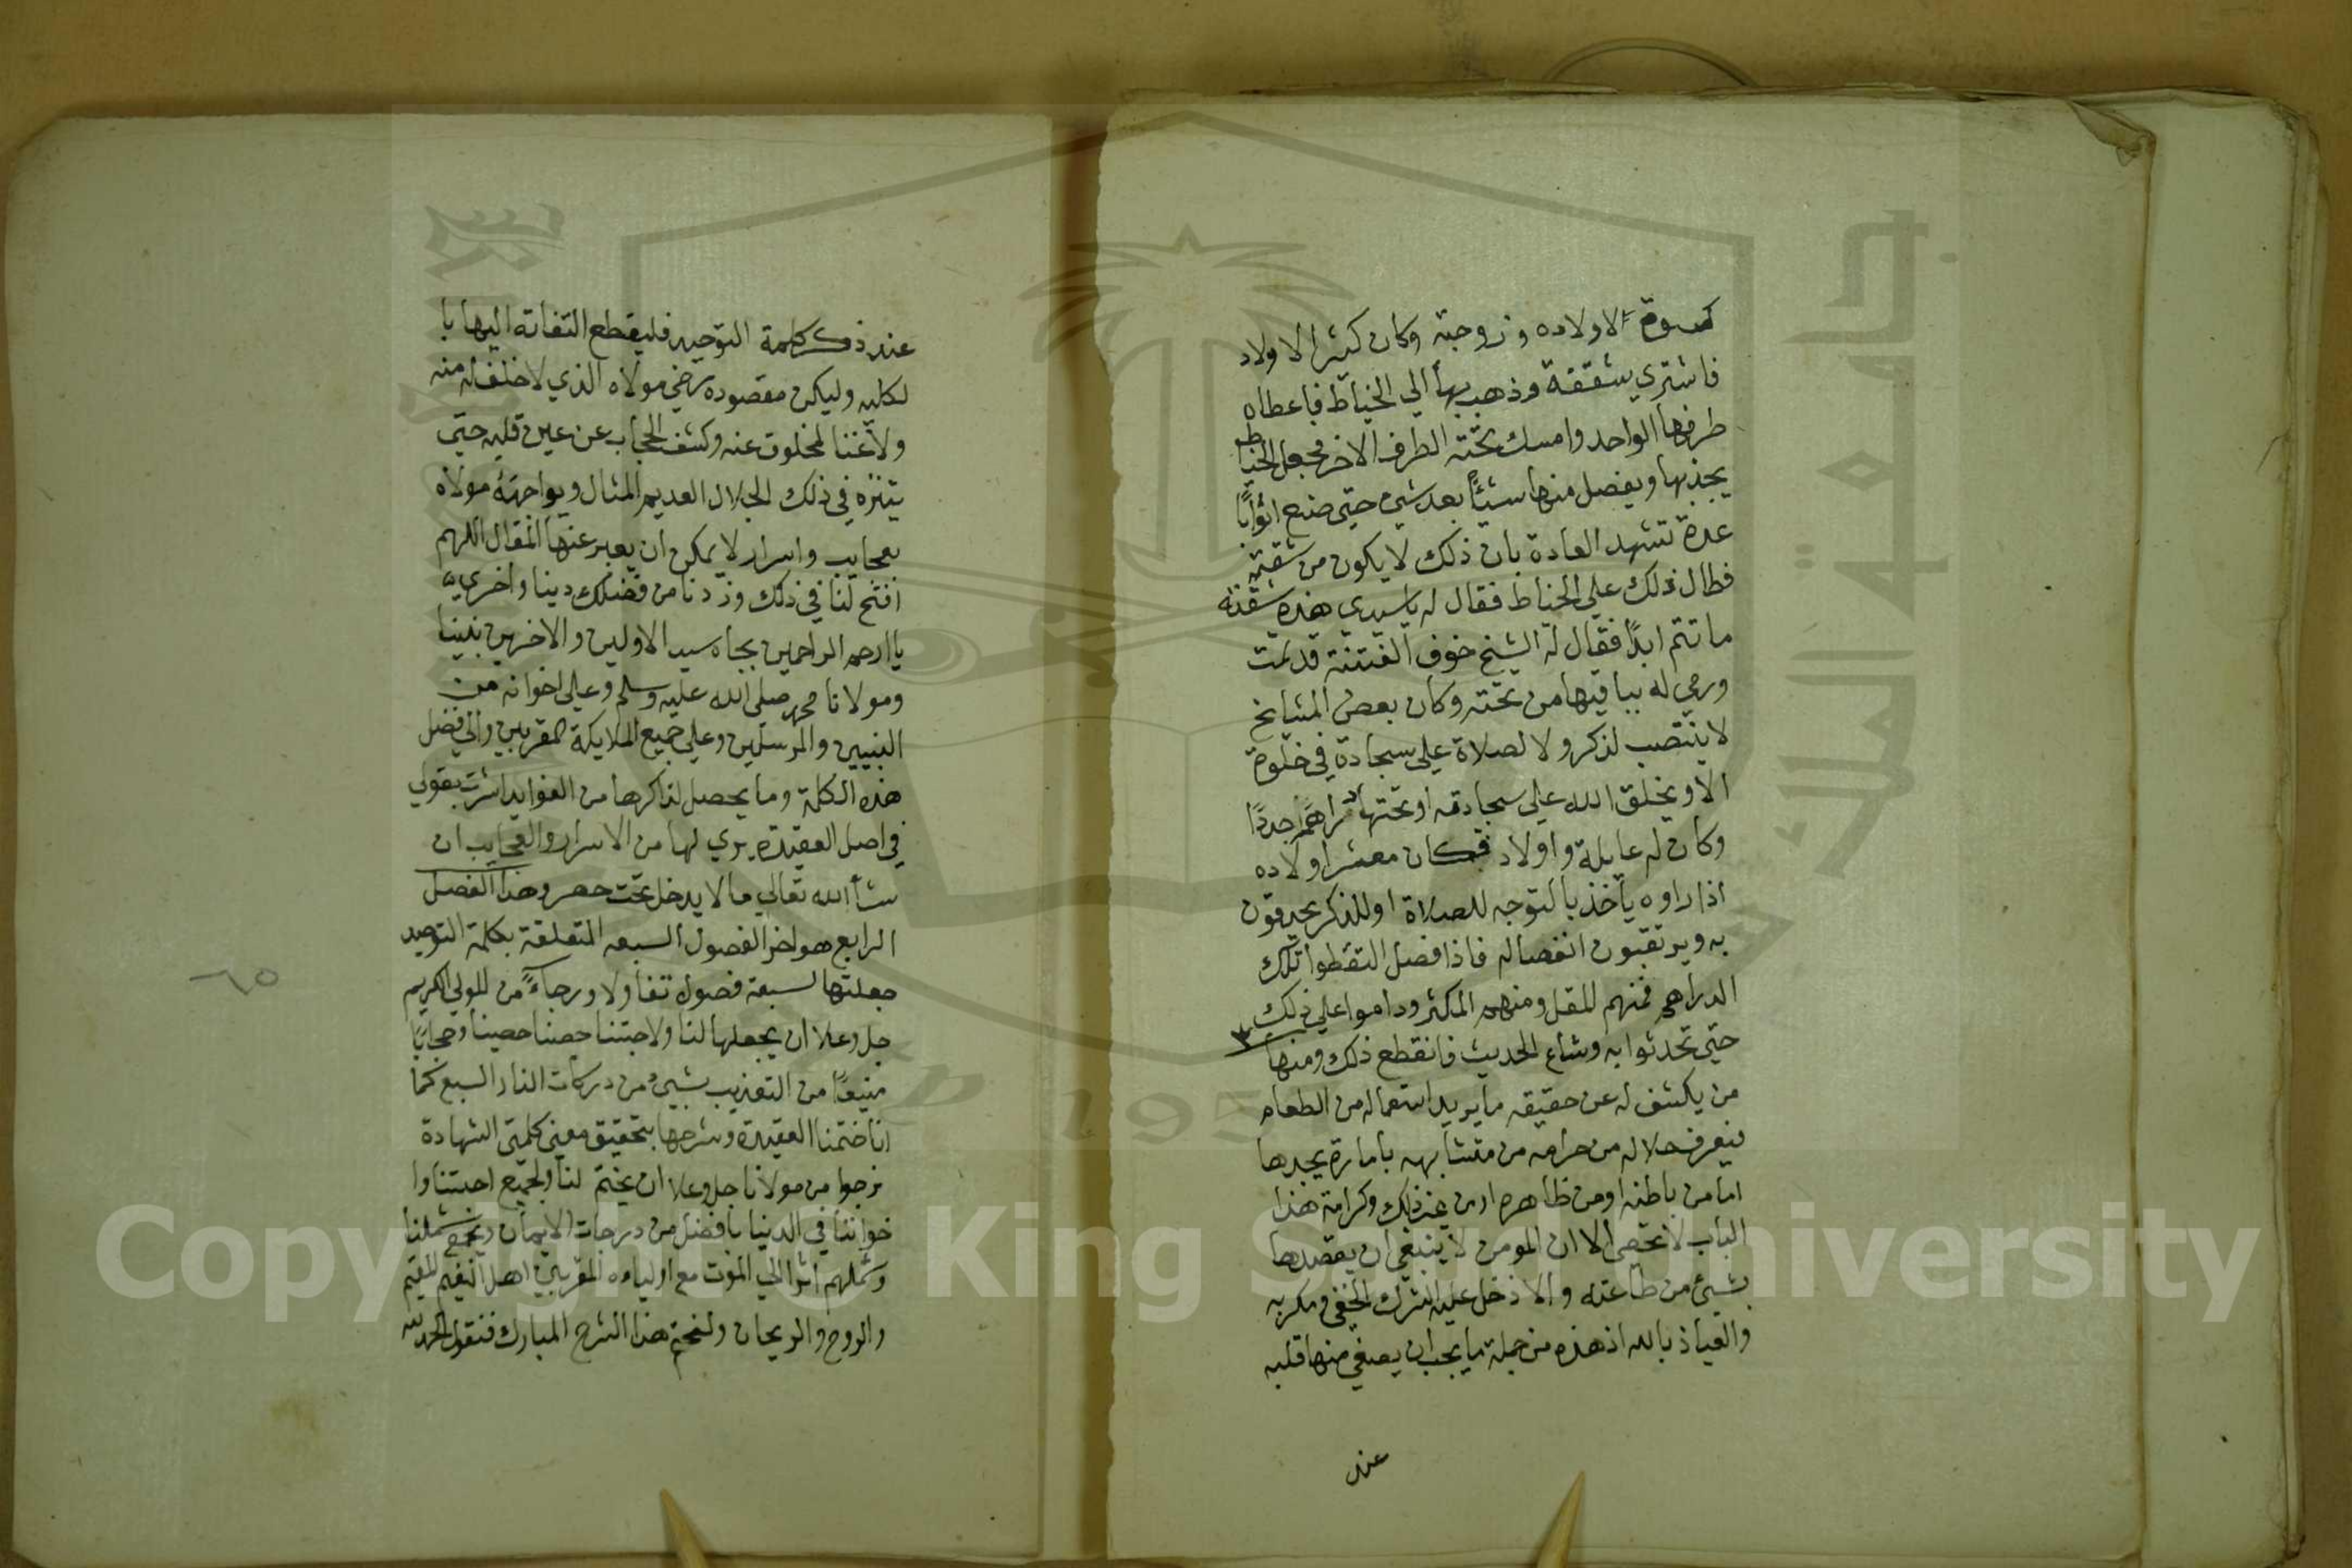 كسوة لاولاده وزوجته وكان كثير الاولاد
فاشتري شققة وذهب بها الي الخياط فاعطاه
طرفها الواحد وامسك تحته الطرف الاخر فجعل الخياط
يجذبها ويفصل منها شيئًا بعد شيء حتي صنع اثوابًا
عدة تشهد العادة بان ذلك لا يكون من شقة
فطال ذلك علي الخياط فقال له يا سيدي هذه شققة
ما تتم ابدًا فقال له الشيخ خوف الفتنة قد تمت
ورمي له بباقيها من تحته وكان بعض المشايخ
لا ينتصب لذكر ولا لصلاة علي سجادة في خلوة
الا ويخلق الله علي سجادته او تحتها دراهم جددًا
وكان له عايلة واولاد فكان معشر اولاده
اذا راوه ياخذ بالتوجه للصلاة او للذكر يحدقون
به ويرتقبون انفصاله فاذا فصل التقطوا تلك
الدراهم فمنهم المقل ومنهم المكثر وداموا علي ذلك
حتي تحدثوا به وشاع الحديث فانقطع ذلك ومنها
من يكشف له عن حقيقه ما يريد استعماله من الطعام
فيعرف حلاله من حرامه من متشابهه بامارة يجدها
اما من باطنه او من ظاهره او من غير ذلك وكرامة هذا
الباب لا تحصي الا ان المومن لا ينبغي ان يقصدها
بشيئ من طاعته والا دخل عليه الشرك الخفي ومكر به
والعياذ بالله اذ هذه من جملة ما يجب ان يصفي منها قلبه
عند
عند ذكر كلمة التوحيد فليقطع التفاته اليها با
لكليه وليكن مقصوده رضي مولاه الذي لا خلف له منه
ولا غنا لمخلوق عنه وكشف الحجاب عن عين قلبه حتي
يتنزه في ذلك الجلال العديم المثال ويواجهه مولاه
بعجايب واسرار لا يمكن ان يعبر عنها المقال اللهم
افتح لنا في ذلك وزدنا من فضلك دينا واخري
يا ارحم الراحمين بجاه سيد الاولين والاخرين نبينا
ومولانا محمد صلي الله عليه وسلم وعلي اخوانه من
النبيين والمرسلين وعلي جميع الملايكة المقربين والي فضل
هذه الكلمة وما يحصل لذاكرها من الفوايد اشرت بقولي
في اصل العقيدة يري لها من الاسرار والعجايب ان
شأ الله تعالي ما لا يدخل تحت حصر وهذا الفصل
الرابع هو اخر الفصول السبعه المتعلقة بكلمة التوحيد
جعلتها لسبعة فصول تفأولا ورجاءً من المولي الكريم
جل وعلا ان يجعلها لنا ولاحبتنا حصنا حصينا وحجابًا
منيعًا من التعذيب بشيئ من دركات النار السبع كما
انا ختمنا العقيدة وشرحها بتحقيق معني كلمتي الشهادة
نرجوا من مولانا جل وعلا ان يختم لنا ولجميع احبتنا وا
خواننا في الدنيا بافضل من درجات الايمان ويجمع شملنا
وشملهم اثرا الي الموت مع اولياءه المقربين اهل النعيم المقيم
والروح والريحان ولنختم هذا الشرح المبارك فنقول الحمد لله
٦٥
Copyright © King Saud University
جامعة الملك سعود